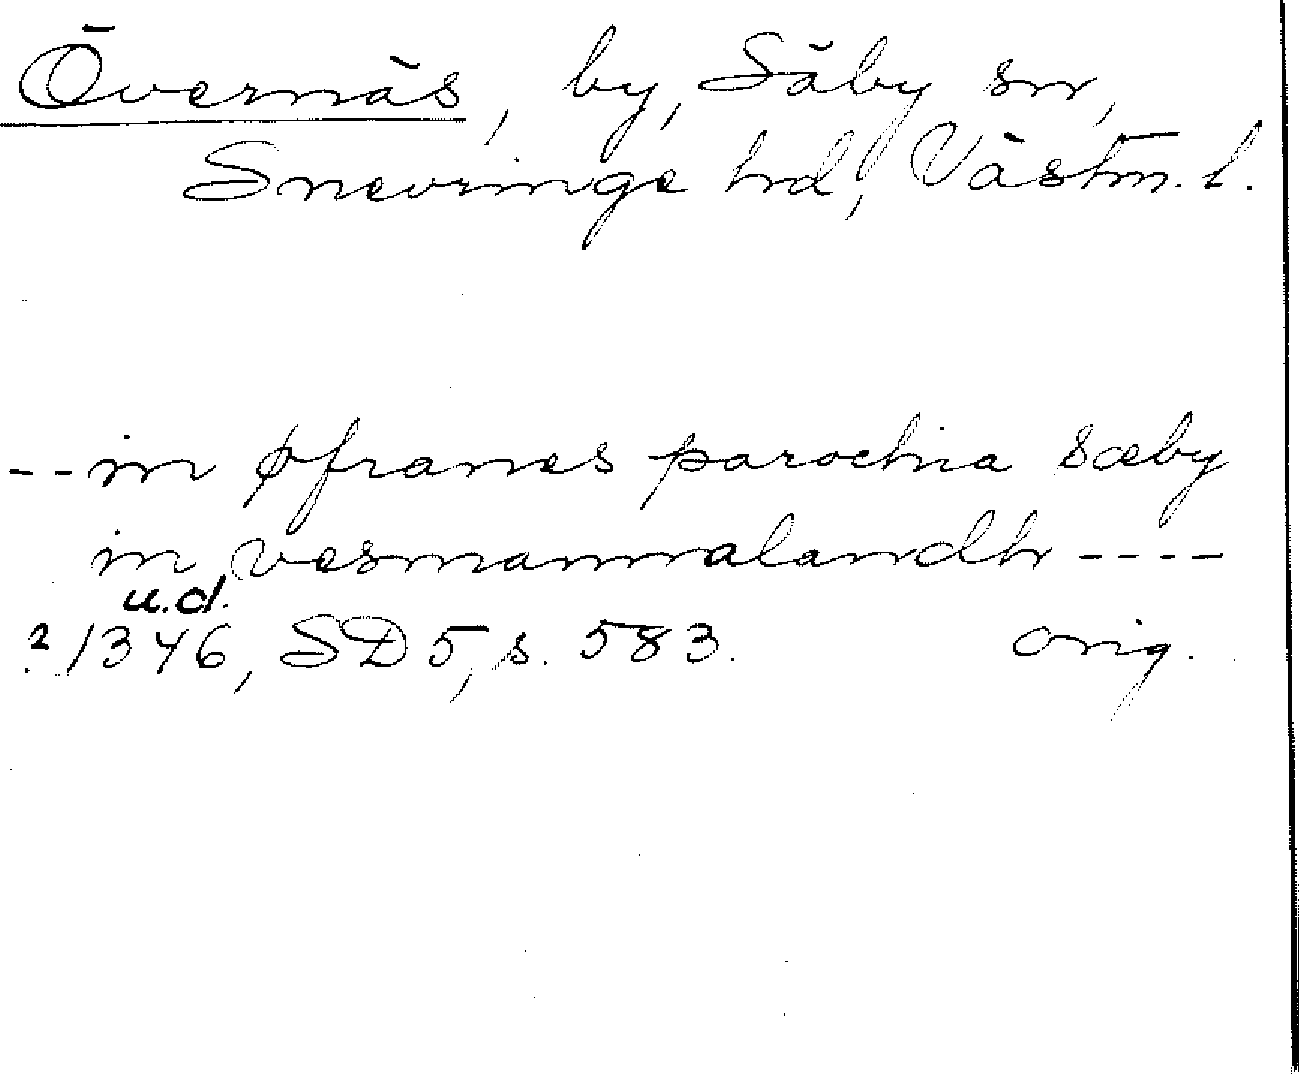 Övernäs, by, Säby sn,
Snevringe hd, Västm. l.
-- in øfranes parochia sæby
in vesmannalandh ----
u.d.
? 1346, SD 5, s. 583. orig.